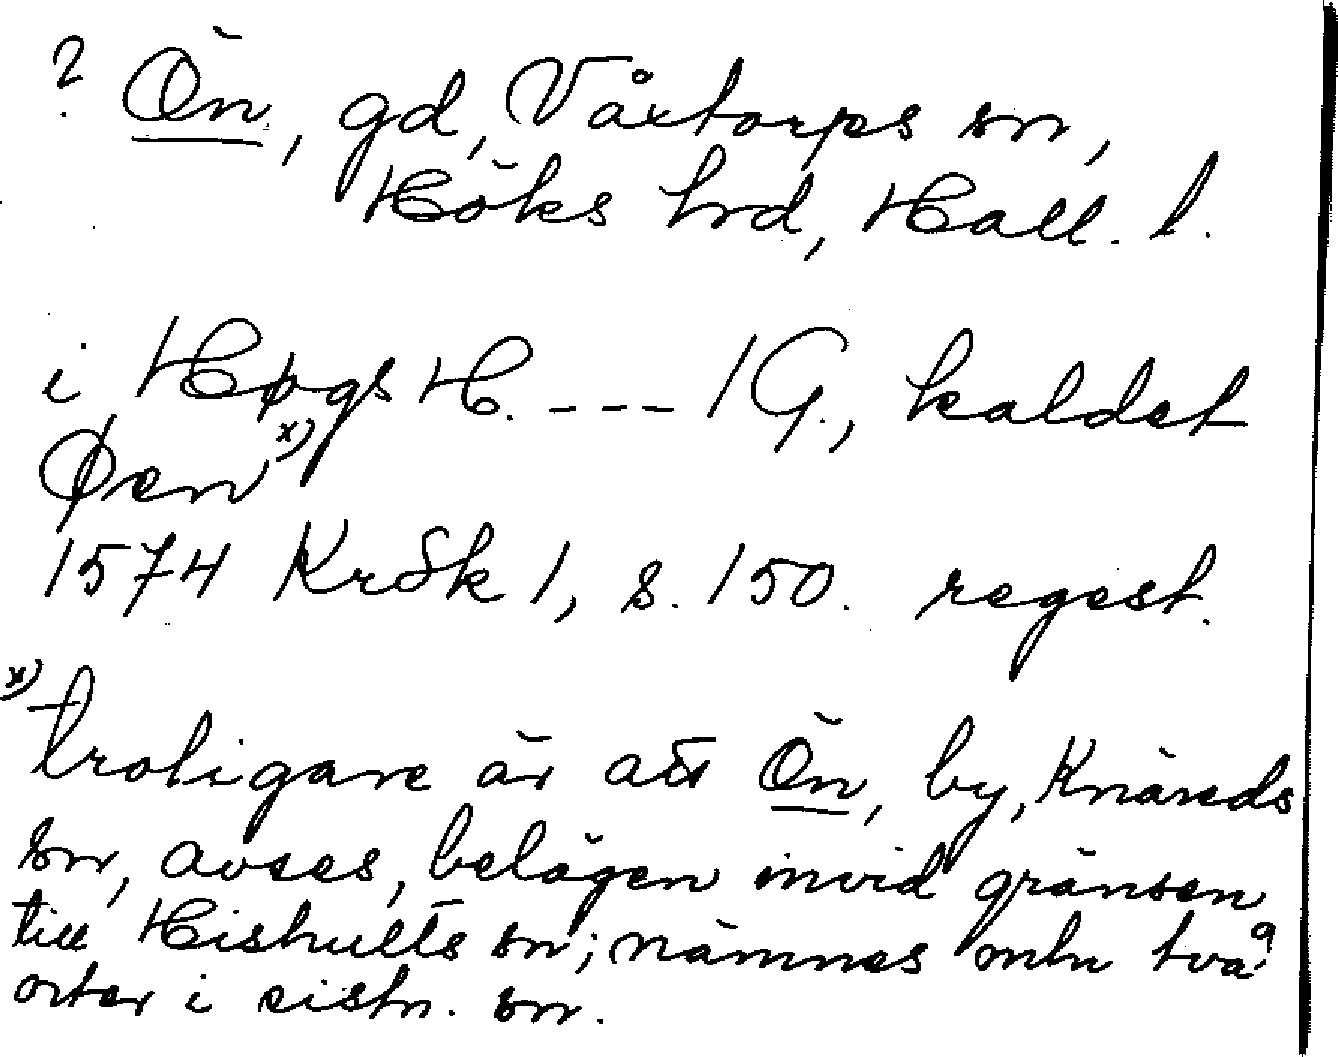 ? Ön, gd, Våxtorps sn,
Höks hrd, Hall. l.
i Høgs H. - - - 1 G., kaldet
Øen x)
1574 KrSk 1, s. 150. regest.
x) troligare är att Ön, by, Knäreds
sn, avses, belägen invid gränsen
till Hishults sn; nämnes mln två
orter i sistn. sn.